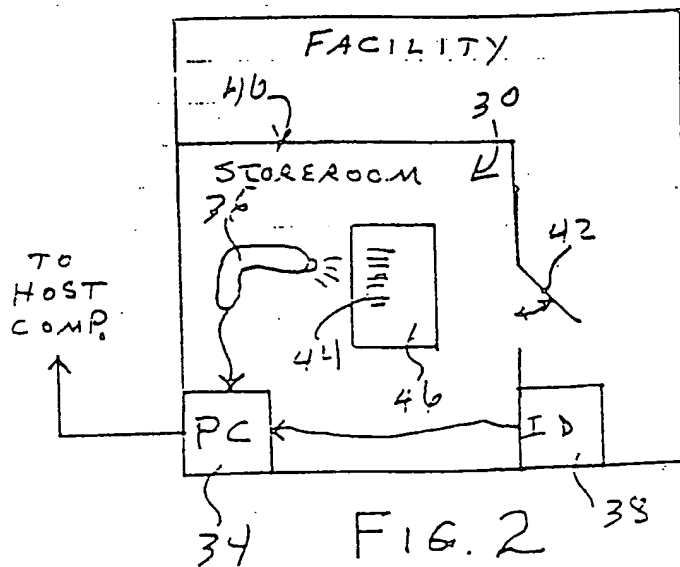 FACILITY
40
30
STOREROOM
36
42
TO
HOST
COMP.
44
46
PC
ID
34
38
FIG. 2